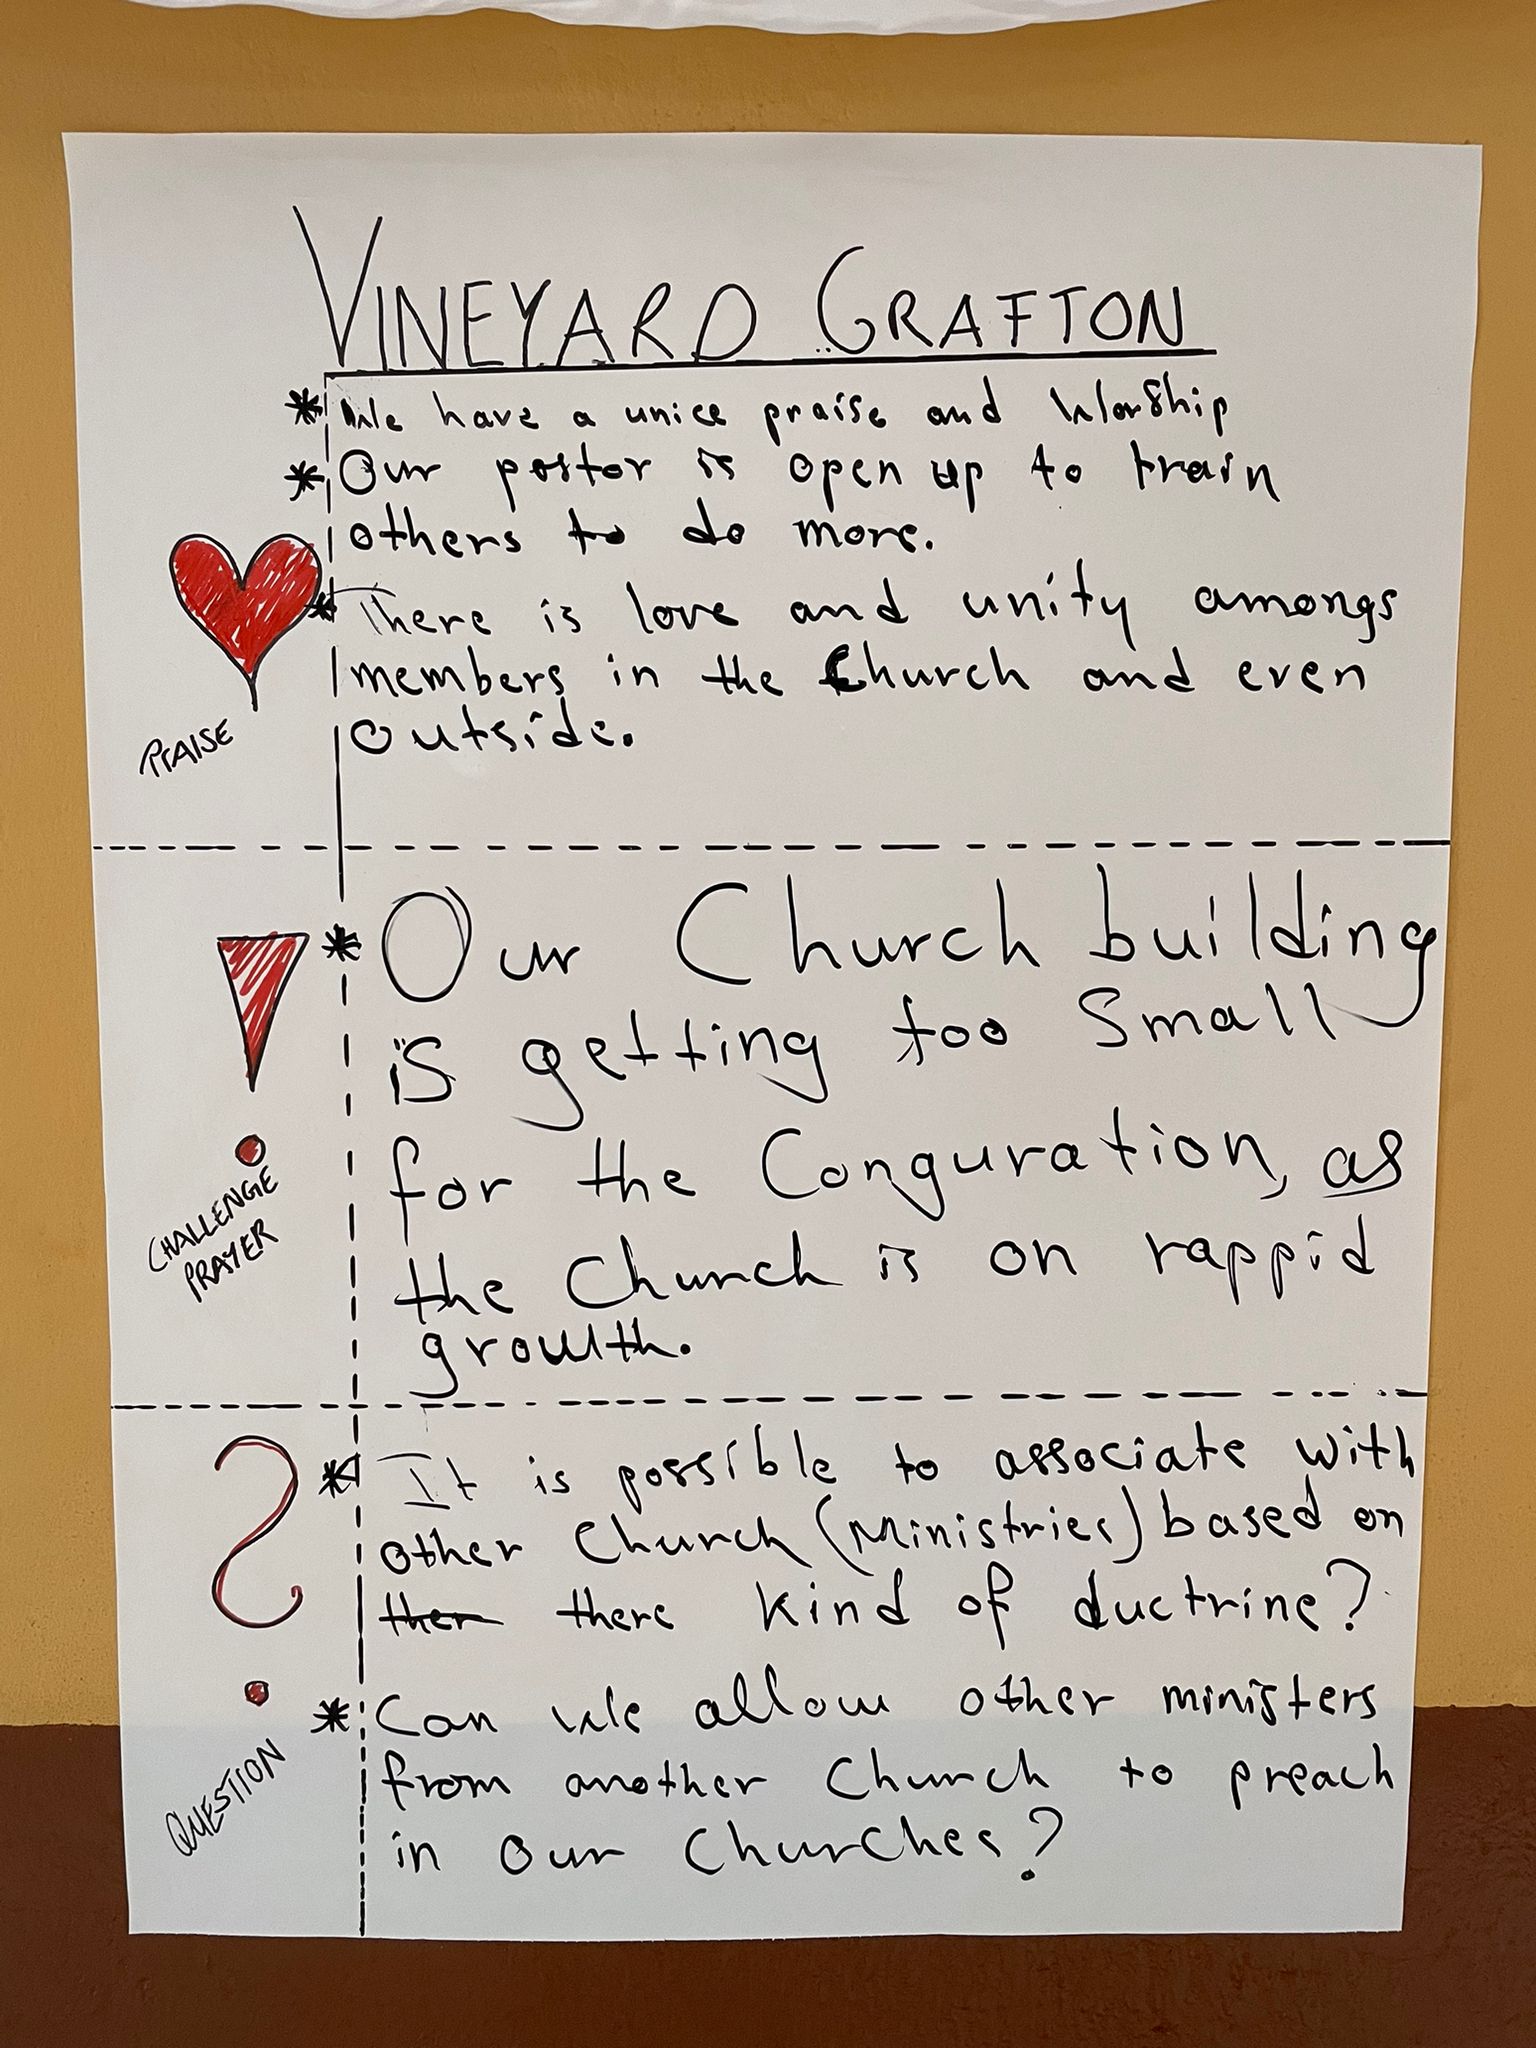 VINEYARD GRAFTON
* We have a unice praise and Worship
* Our pastor is open up to train
others to do more.
* There is love and unity amongs
members in the Church and even
outside.
PRAISE
* Our Church building
is getting too Small
for the Conguration, as
the Church is on rappid
growth.
CHALLENGE
PRAYER
* It is possible to associate with
other Church (Ministries) based on
ther there kind of ductrine?
* Can We allow other ministers
from another Church to preach
in our Churches?
QUESTION